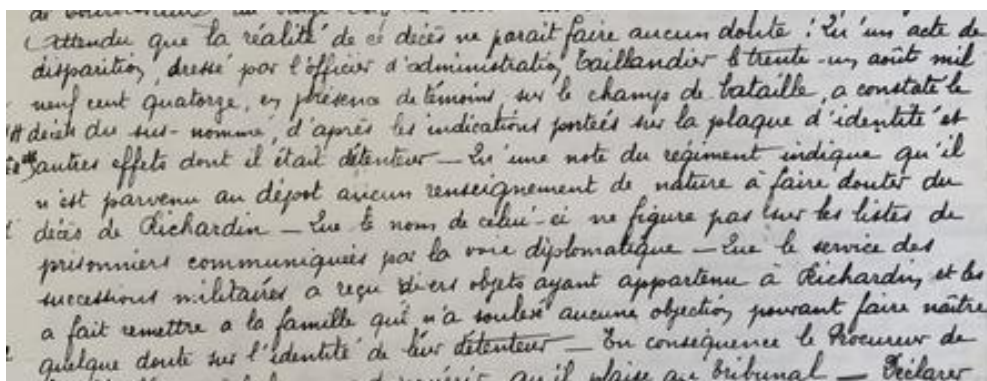 Attendu que la réalité de ce décès ne parait faire aucun doute : Qu'un acte de
disparition, dressé par l'officier d'administration Taillandier le trente-un août mil
neuf cent quatorze, en présence de témoins, sur le champs de bataille, a constaté le
décès du sus-nommé, d'après les indications portées sur la plaque d'identité et
autres effets dont il était détenteur — Qu'une note du régiment indique qu'il
n'est parvenu au dépot aucun renseignement de nature à faire douter du
décès de Richardin — Que le nom de celui-ci ne figure pas sur les listes de
prisonniers communiquées par la voie diplomatique — Que le service des
successions militaires a reçu divers objets ayant appartenu à Richardin, et les
a fait remettre a la famille qui n'a soulevé aucune objection pouvant faire naître
quelque doute sur l'identité de leur détenteur — En conséquence le Procureur de
qu'il plaise au tribunal — Déclarer